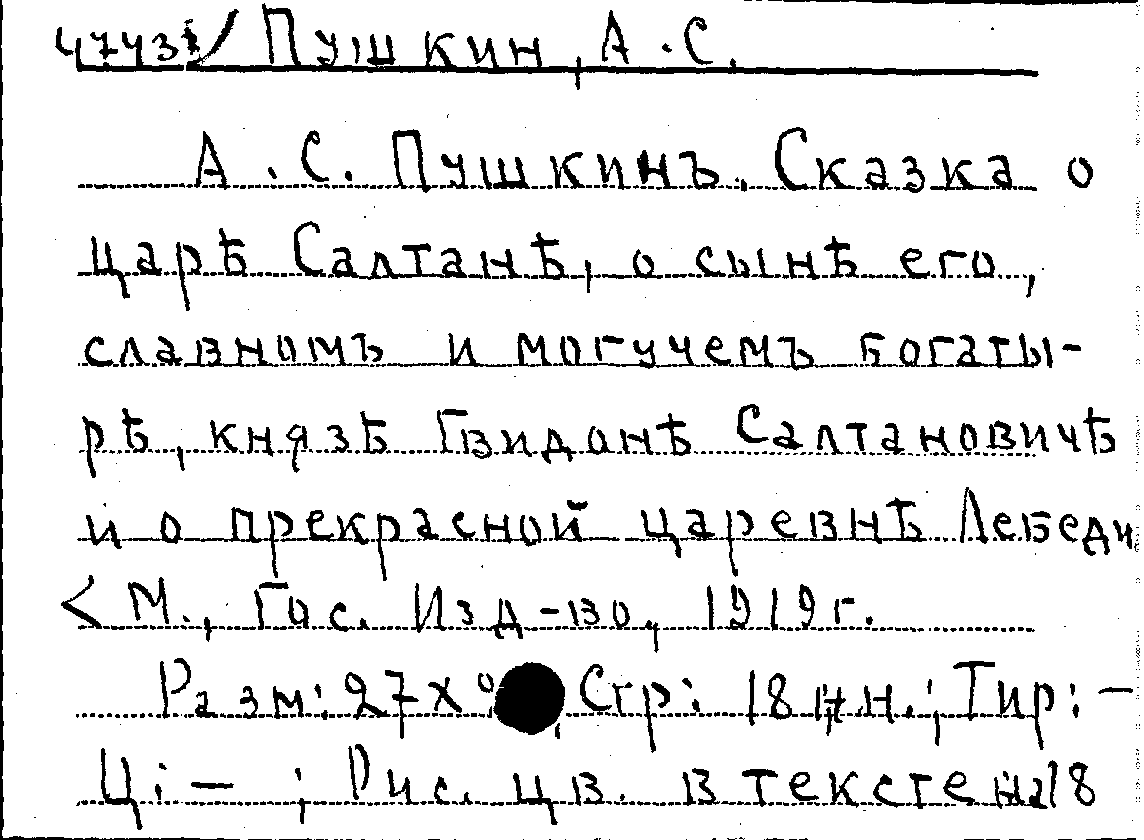 Пушкин, А.С.
А.С. Пушкинъ. Сказка о
царѣ Салтанѣ, о сынѣ его,
славномъ и могучемъ богаты-
рѣ, князѣ Гвидонѣ Салтановичѣ
и о прекрасной царевнѣ Лебеди
< М., Гос. Изд-во, 1919 г.
Разм: 27х Стр: 18 н.; Тир: —
Ц: — ; Рис. цв. в тексте на 18